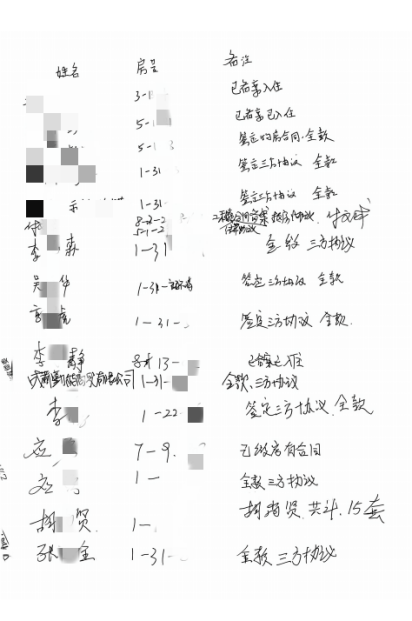 姓名 房号 备注
3- 已备案入住
5- 已备案已入住
5-1 签定购房合同.全款
1-31 签定三方协议 全款
1-31 签定三方协议 全款
8-2-2
5-1-2
李 森 1-31 全款 三方协议
吴 华 1-31- 签定三方协议 全款
李 虎 1-31- 签定三方协议 全款.
李 静 13- 已备案已入住
有限公司 1-31- 全款、三方协议
李 1-22 签定三方协议.全款
应 7-9. 已级房有合同
应 1- 全款 三方协议
胡 贤 1- 胡 贤 共计.15套
张 全 1-31- 全款 三方协议